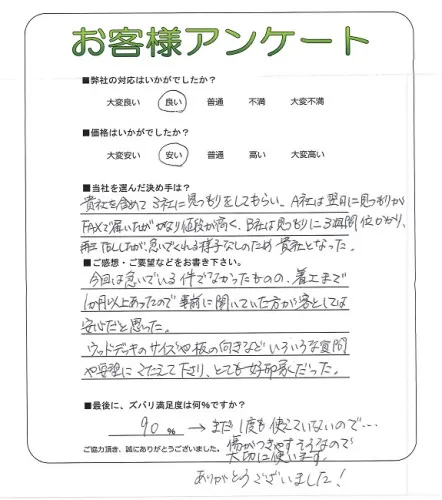 お客様アンケート
■弊社の対応はいかがでしたか？
大変良い 良い 普通 不満 大変不満
■価格はいかがでしたか？
大変安い 安い 普通 高い 大変高い
■当社を選んだ決め手は？
貴社を含めて3社に見つもりをしてもらい、A社は翌日に見つもりが
FAXで届いたがかなり値段が高く、B社は見つもりに3週間位かかり、
電話したが急いでくれる様子なしのため貴社となった。
■ご感想・ご要望などをお書き下さい。
今回は急いでいる件でなかったものの、着工まで
1か月以上あったので事前に聞いていた方が客としては
安心だと思った。
ウッドデッキのサイズや板の向きなどいろいろな質問
や要望にこたえて下さり、とても好印象だった。
■最後に、ズバリ満足度は何%ですか？
90 % → まだ1度も使えていないので…
傷がつきやすそうなので
ご協力頂き、誠にありがとうございました。 大切に使います。
ありがとうございました！